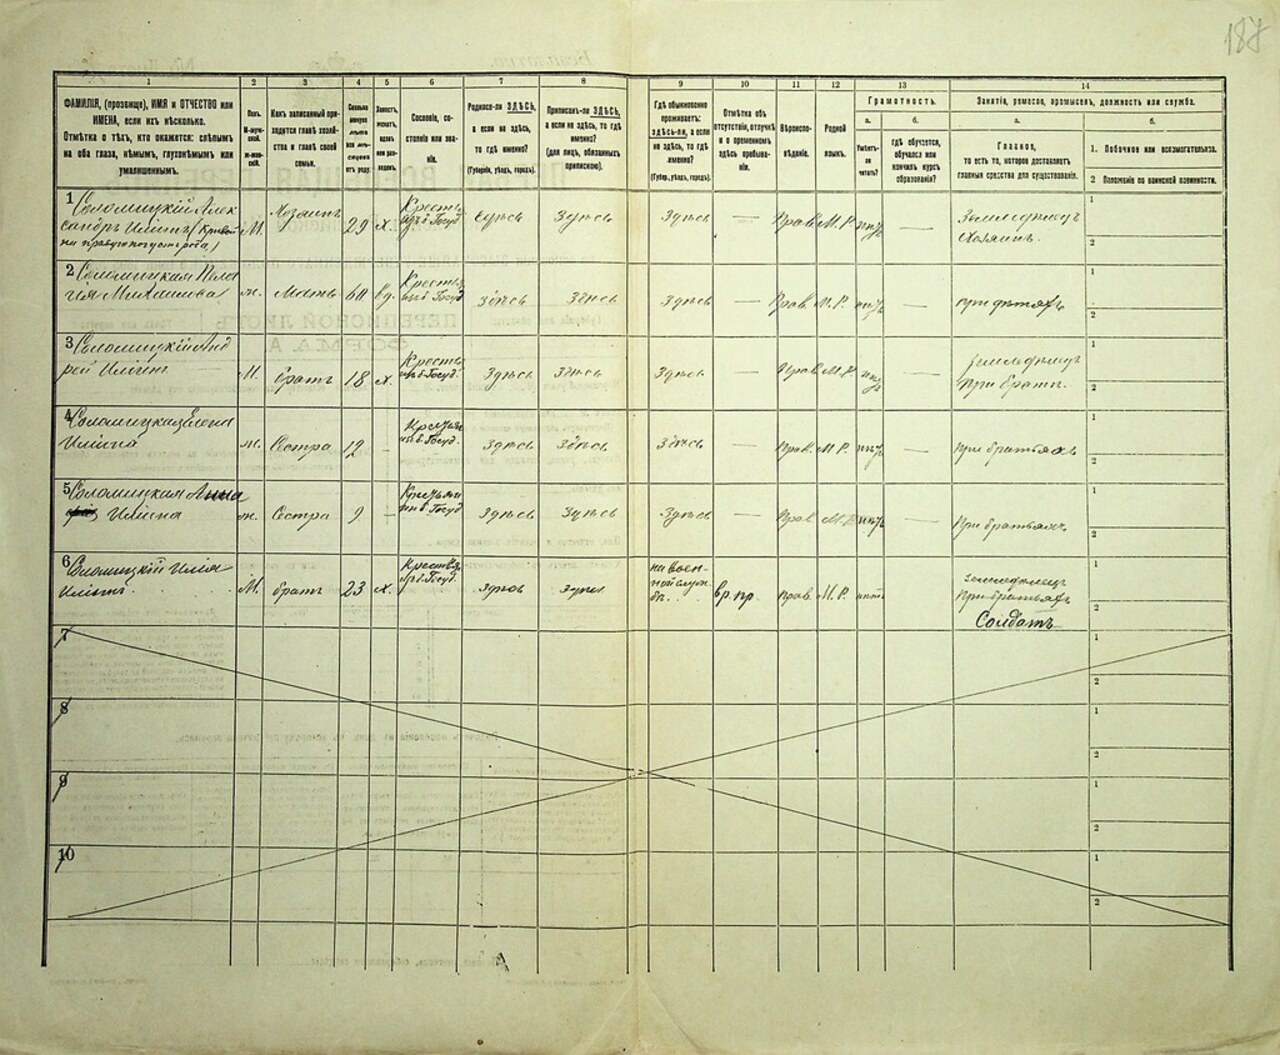 187
1
2
3
4
5
6
7
8
9
10
11
12
13
14
ФАМИЛІЯ, (прозвище), ИМЯ и ОТЧЕСТВО или
ИМЕНА, если ихъ нѣсколько.
Отмѣтка о тѣхъ, кто окажется: слѣпымъ
на оба глаза, нѣмымъ, глухонѣмымъ или
умалишеннымъ.
Полъ.
М-муж-
ской.
Ж-жен-
скій.
Какъ записанный при-
ходится главѣ хозяй-
ства и главѣ своей
семьи.
Сколько
минуло
лѣтъ
или мѣ-
сяцевъ
отъ роду.
Холостъ,
женатъ,
вдовъ
или раз-
веденъ.
Сословіе, со-
стояніе или зва-
ніе.
Родился-ли ЗДѢСЬ,
а если не здѣсь,
то гдѣ именно?
(Губернія, уѣздъ, городъ).
Приписанъ-ли ЗДѢСЬ,
а если не здѣсь, то гдѣ
именно?
(для лицъ, обязанныхъ
припискою).
Гдѣ обыкновенно
проживаетъ:
здѣсь-ли, а если
не здѣсь, то гдѣ
именно?
(Губер., уѣздъ, городъ).
Отмѣтка объ
отсутствіи, отлучкѣ
и о временномъ
здѣсь пребыва-
ніи.
Вѣроиспо-
вѣданіе.
Родной
языкъ.
Грамотность.
а.
Умѣетъ-
ли
читать?
б.
гдѣ обучается,
обучался или
кончилъ курсъ
образованія?
Занятія, ремесло, промыселъ, должность или служба.
а.
Главное,
то есть то, которое доставляетъ
главныя средства для существованія.
б.
1. Побочное или вспомогательное.
2 Положеніе по воинской повинности.
1 Соломицкій Алек
сандръ Ильинъ (Кривой
на правую
М. Хозяинъ 29 х. Крестья
изъ б. Госуд. здѣсь здѣсь здѣсь — Прав. М. Р. — Земледѣлецъ
Хозяинъ.
1
2
2 Соломицкая Пела
гія Михайлова
ж. Мать 60 вд. Крестья
изъ б. Госуд здѣсь здѣсь здѣсь — Прав. М. Р. — при дѣтяхъ
1
2
3 Соломицкій Анд
рей Ильинъ
М. братъ 18 х. Крестья
изъ б. Госуд. здѣсь здѣсь здѣсь — Прав М. Р. — земледѣлецъ
При братѣ.
1
2
4 Соломицкая Елена
Ильина
ж. Сестра 12 - Крестьян
изъ б. Госуд. здѣсь здѣсь здѣсь — Прав. М. Р. — При братьяхъ
1
2
5 Соломицкая Анна
Ильина
ж. Сестра 9 - Крестьян
изъ б. Госуд здѣсь здѣсь здѣсь — Прав М. Р. — При братьяхъ
1
2
6 Соломицкій Илія
Ильинъ
М. братъ 23 х. Крестья
изъ б. Госуд. здѣсь здѣсь на воен-
ной служ-
бѣ. вр. пр. Прав. М. Р. земледѣлецъ
При братьяхъ
Солдатъ
1
2
7
1
2
8
1
2
9
1
2
10
1
2